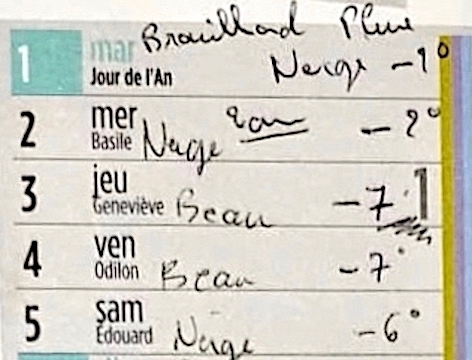 mar Brouillard Pluie
1 Jour de l'An Neige -1°
mer
2 Basile Neige 2cm -2°
jeu
3 Geneviève Beau -7° 1
ven
4 Odilon Beau -7°
sam
5 Édouard Neige -6°